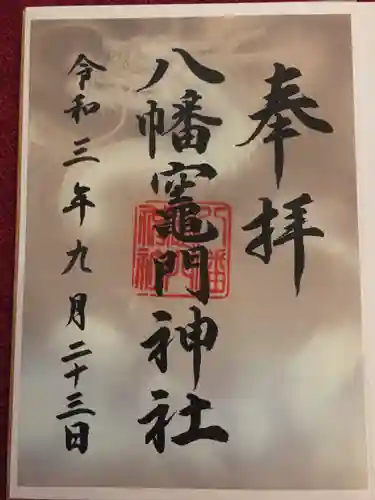 奉拝
八幡竈門神社
令和三年九月二十三日